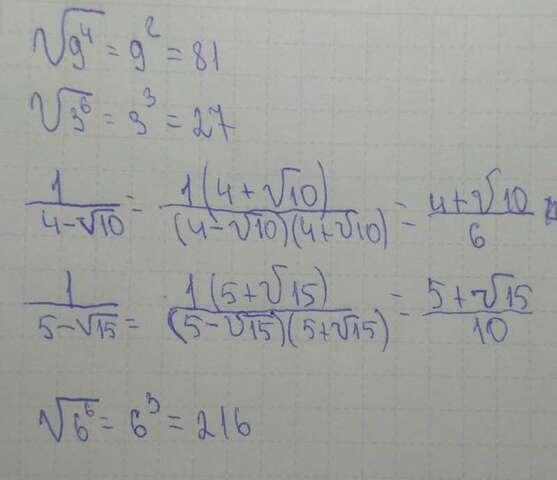 √9⁴ = 9² = 81
√3⁶ = 3³ = 27
1/(4-√10) = 1(4+√10)/((4-√10)(4+√10)) = (4+√10)/6
1/(5-√15) = 1(5+√15)/((5-√15)(5+√15)) = (5+√15)/10
√6⁶ = 6³ = 216